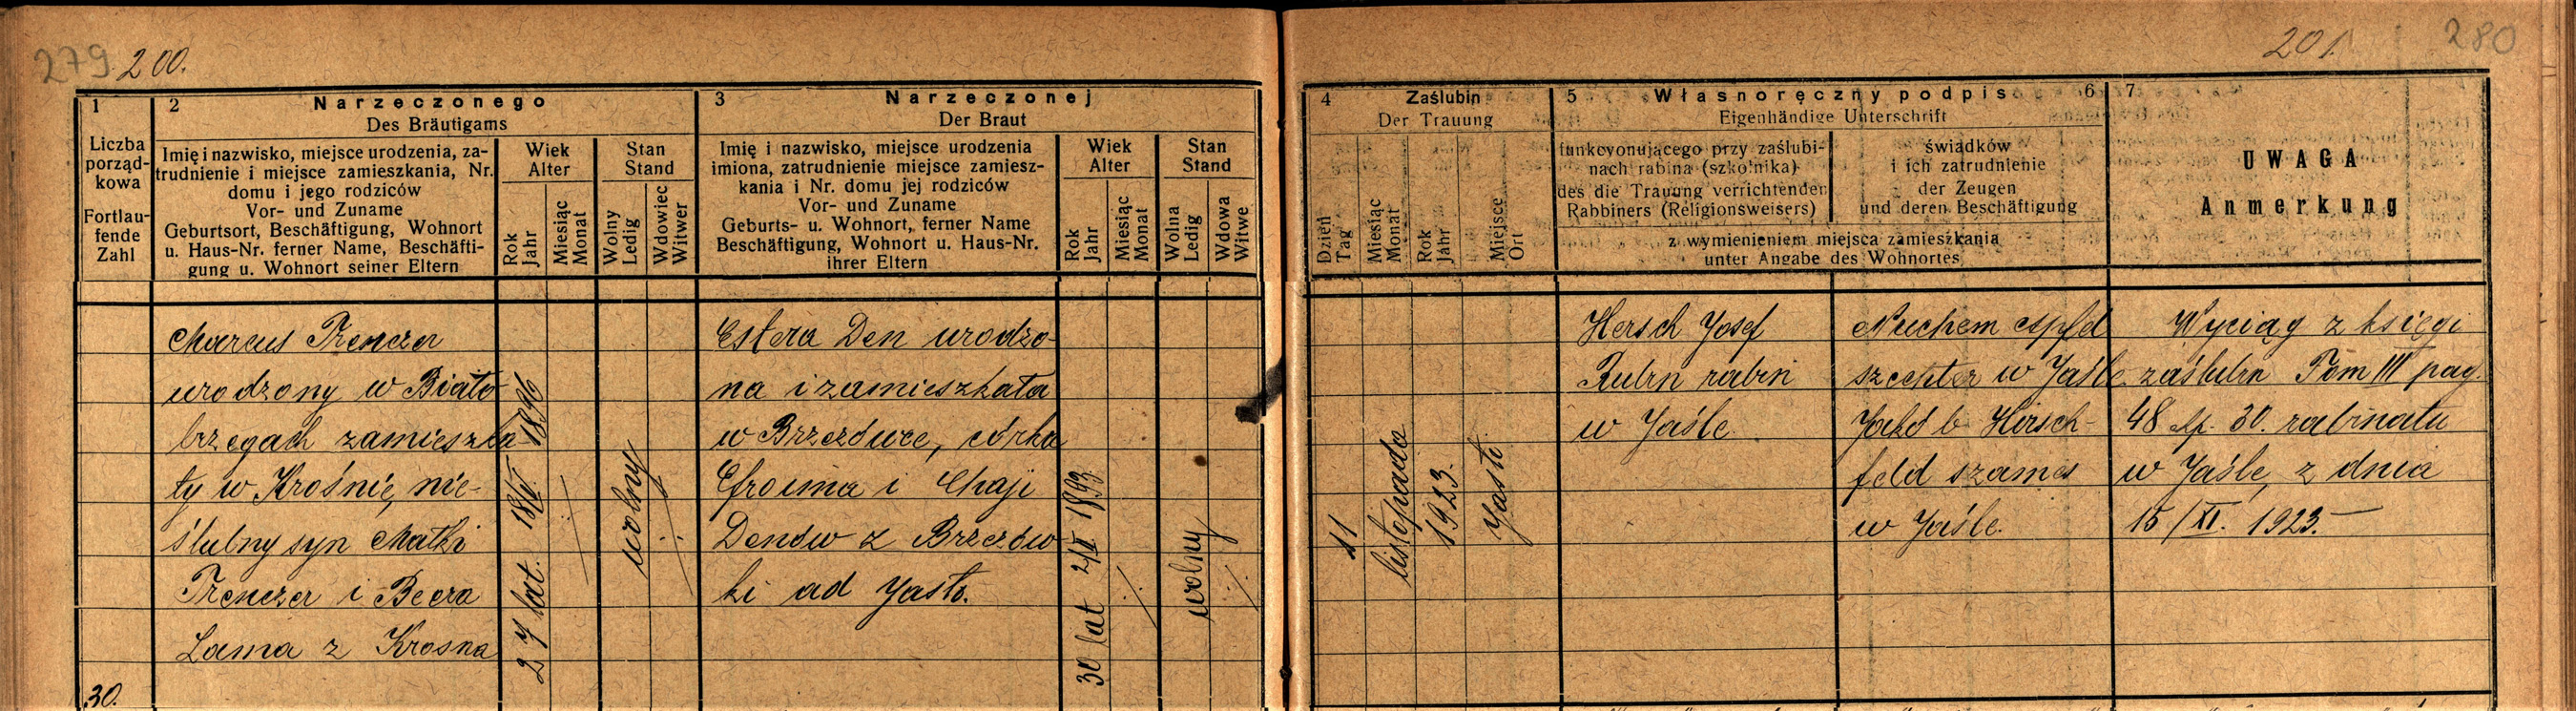 279 200.
201. 280
1
Liczba
porząd-
kowa
Fortlau-
fende
Zahl
2 Narzeczonego
Des Bräutigams
Imię i nazwisko, miejsce urodzenia, za-
trudnienie i miejsce zamieszkania, Nr.
domu i jego rodziców
Vor- und Zuname
Geburtsort, Beschäftigung, Wohnort
u. Haus-Nr. ferner Name, Beschäfti-
gung u. Wohnort seiner Eltern
Wiek
Alter
Rok
Jahr
Miesiąc
Monat
Stan
Stand
Wolny
Ledig
Wdowiec
Witwer
3 Narzeczonej
Der Braut
Imię i nazwisko, miejsce urodzenia
imiona, zatrudnienie miejsce zamiesz-
kania i Nr. domu jej rodziców
Vor- und Zuname
Geburts- u. Wohnort, ferner Name
Beschäftigung, Wohnort u. Haus-Nr.
ihrer Eltern
Wiek
Alter
Rok
Jahr
Miesiąc
Monat
Stan
Stand
Wolna
Ledig
Wdowa
Witwe
4 Zaślubin
Der Trauung
Dzień
Tag
Miesiąc
Monat
Rok
Jahr
Miejsce
Ort
5 Własnoręczny podpis 6
Eigenhändige Unterschrift
funkcyonującego przy zaślubi-
nach rabina (szkolnika)
des die Trauung verrichtenden
Rabbiners (Religionsweisers)
świadków
i ich zatrudnienie
der Zeugen
und deren Beschäftigung
z wymienieniem miejsca zamieszkania
unter Angabe des Wohnortes
7
UWAGA
Anmerkung
Marcus Trenczer
urodzony w Biało-
brzegach zamieszka-
ły w Krośnie, nie-
ślubny syn Matki
Trenczer i Beera
Lama z Krosna
30.
27 lat. 18/V 1896
wolny
Estera Den urodzo-
na i zamieszkała
w Brzezówce, córka
Efroima i Chaji
Denów z Brzezów
ki ad Jasło.
30 lat 2/II 1893
wolny
11
listopada
1923.
Jasło.
Hersch Josef
Rubin rabin
w Jaśle.
Nuchem Apfel
szechter w Jaśle
Jakób Hirsch-
feld szames
w Jaśle.
Wyciąg z księgi
zaślubin Tom III pag.
48 lp. 30. rabinatu
w Jaśle, z dnia
15/XI. 1923.